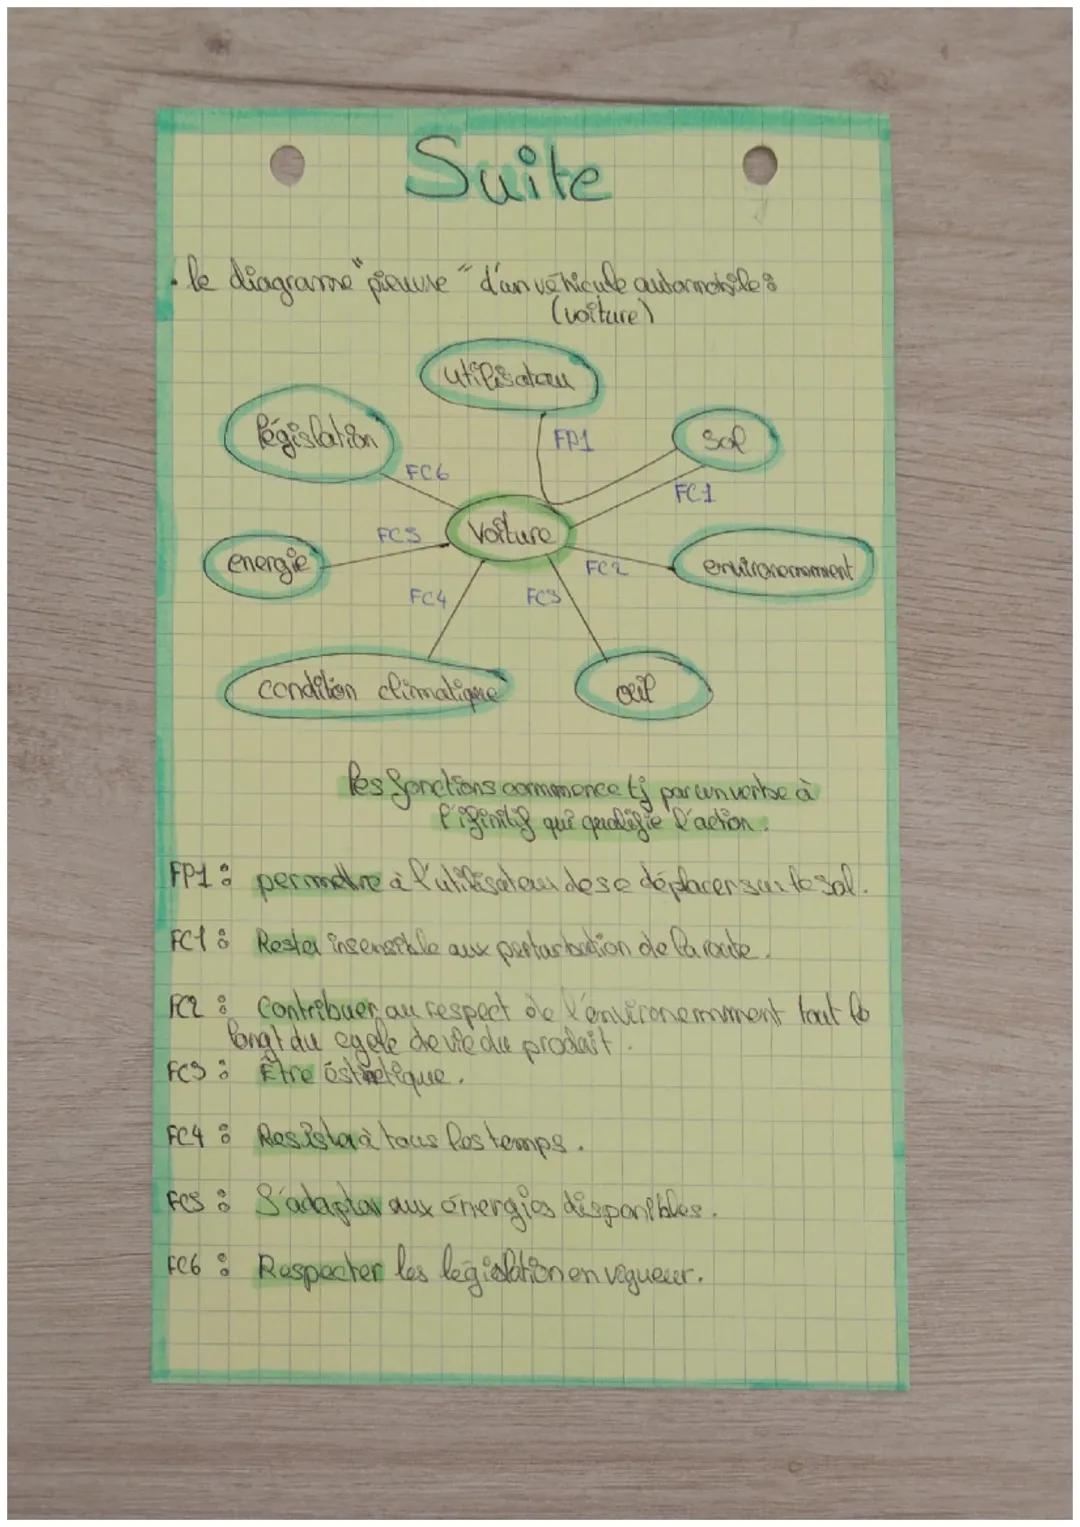 Suite
• le diagrame "pieuvre" d'un véhicule automobile :
(voiture)
utilisateur
législation
FP1
sol
FC6
FC1
Voiture
FC5
energie
FC2
environemment
FC4
FC3
condition climatique
œil
les fonctions commence tj par un verbe à
l'ifinitif qui qualifie l'action.
FP1 : permettre à l'utilisateur de se déplacer sur le sol.
FC1 : Rester insensible aux perturbation de la route.
FC2 : Contribuer au respect de l'environemment tout le
longt du cycle de vie du produit.
FC3 : Être esthetique.
FC4 : Resister à tous les temps.
FC5 : S'adapter aux énergies disponibles.
FC6 : Respecter les legislation en vigueur.